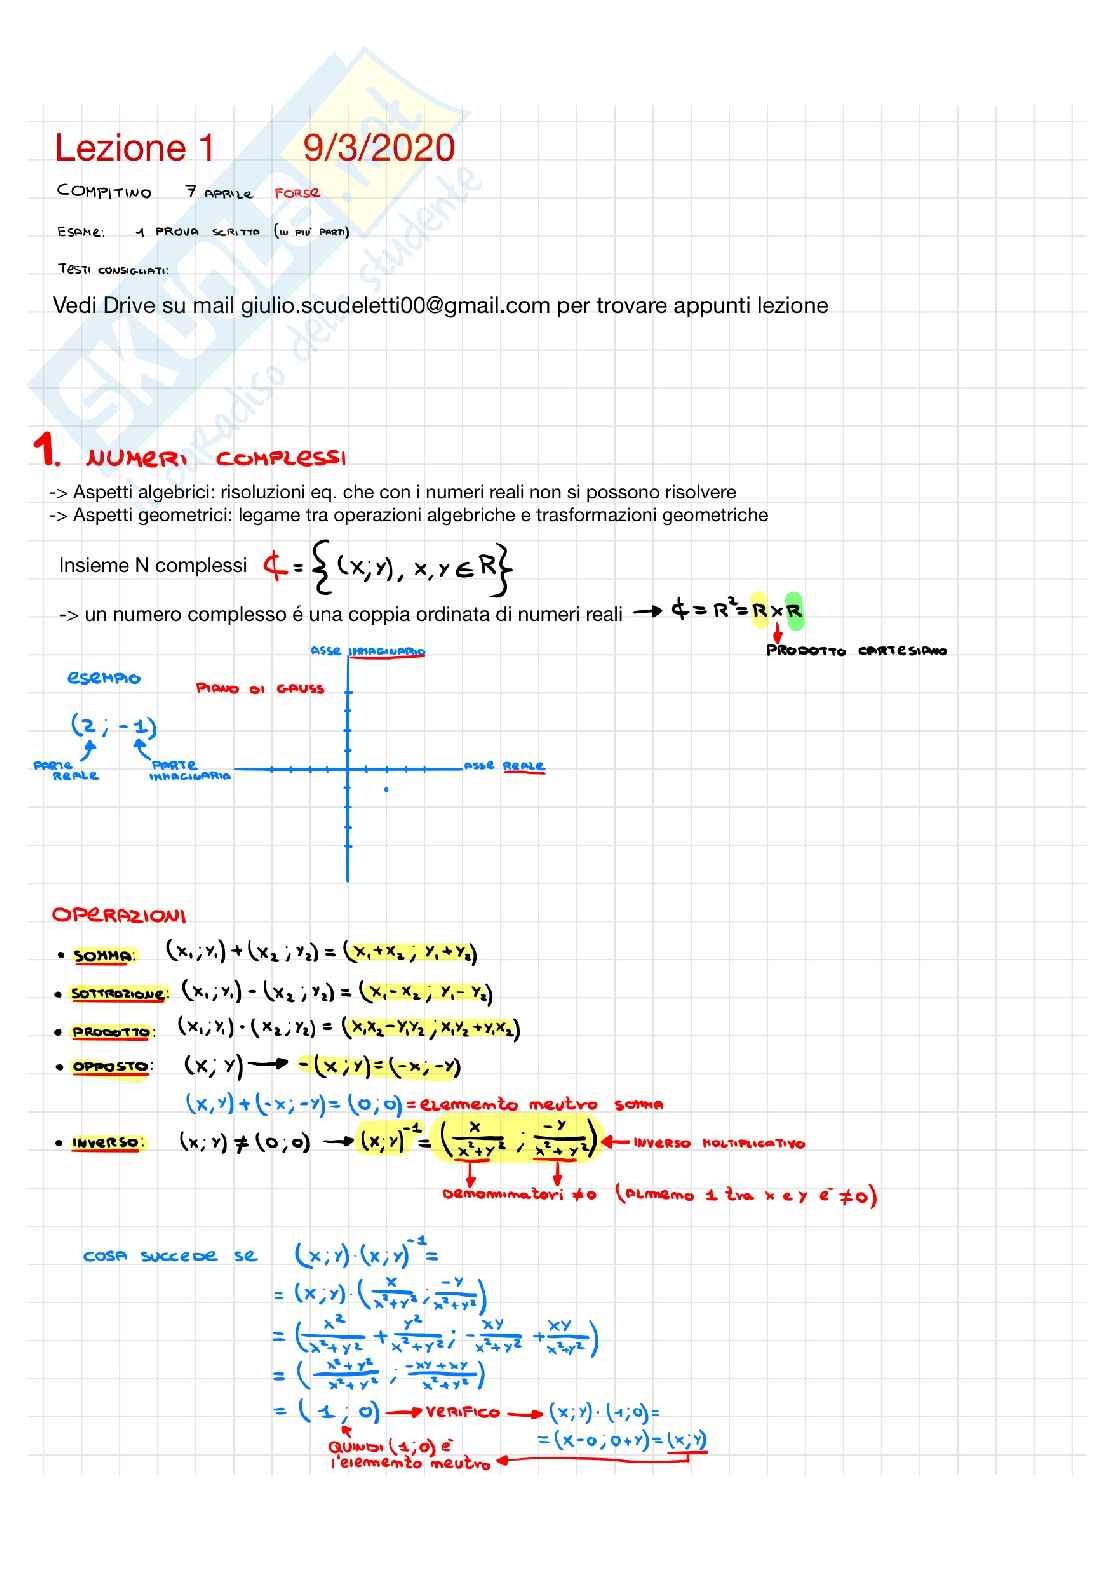 SKUOLA.net
il paradiso dello studente
Lezione 1 9/3/2020
COMPITINO 7 APRILE FORSE
ESAME: 1 PROVA SCRITTA (IN PIÙ PARTI)
TESTI CONSIGLIATI:
Vedi Drive su mail giulio.scudeletti00@gmail.com per trovare appunti lezione
1. NUMERI COMPLESSI
-> Aspetti algebrici: risoluzioni eq. che con i numeri reali non si possono risolvere
-> Aspetti geometrici: legame tra operazioni algebriche e trasformazioni geometriche
Insieme N complessi ℂ = {(x;y), x,y ∈ R}
-> un numero complesso é una coppia ordinata di numeri reali → ℂ = R² = R × R
PRODOTTO CARTESIANO
ASSE IMMAGINARIO
ESEMPIO
PIANO DI GAUSS
(2 ; -1)
PARTE REALE
PARTE IMMAGINARIA
ASSE REALE
OPERAZIONI
• SOMMA: (x₁;y₁)+(x₂;y₂) = (x₁+x₂ ; y₁+y₂)
• SOTTRAZIONE: (x₁;y₁) - (x₂;y₂) = (x₁-x₂ ; y₁-y₂)
• PRODOTTO: (x₁;y₁)·(x₂;y₂) = (x₁x₂-y₁y₂ ; x₁y₂+y₁x₂)
• OPPOSTO: (x;y) → -(x;y)=(-x;-y)
(x,y)+(-x;-y)=(0;0) = elemento neutro somma
• INVERSO: (x;y) ≠ (0;0) → (x;y)⁻¹ = (x/(x²+y²) ; -y/(x²+y²)) ← INVERSO MOLTIPLICATIVO
Denominatori ≠0 (ALMENO 1 tra x e y è ≠0)
COSA SUCCEDE SE (x;y)·(x;y)⁻¹ =
= (x;y)·(x/(x²+y²) ; -y/(x²+y²))
= (x²/(x²+y²) + y²/(x²+y²) ; -xy/(x²+y²) + xy/(x²+y²))
= ((x²+y²)/(x²+y²) ; (-xy+xy)/(x²+y²))
= (1 ; 0) → VERIFICO → (x;y)·(1;0)=
= (x-0 ; 0+y) = (x;y)
QUINDI (1;0) è
l'elemento neutro